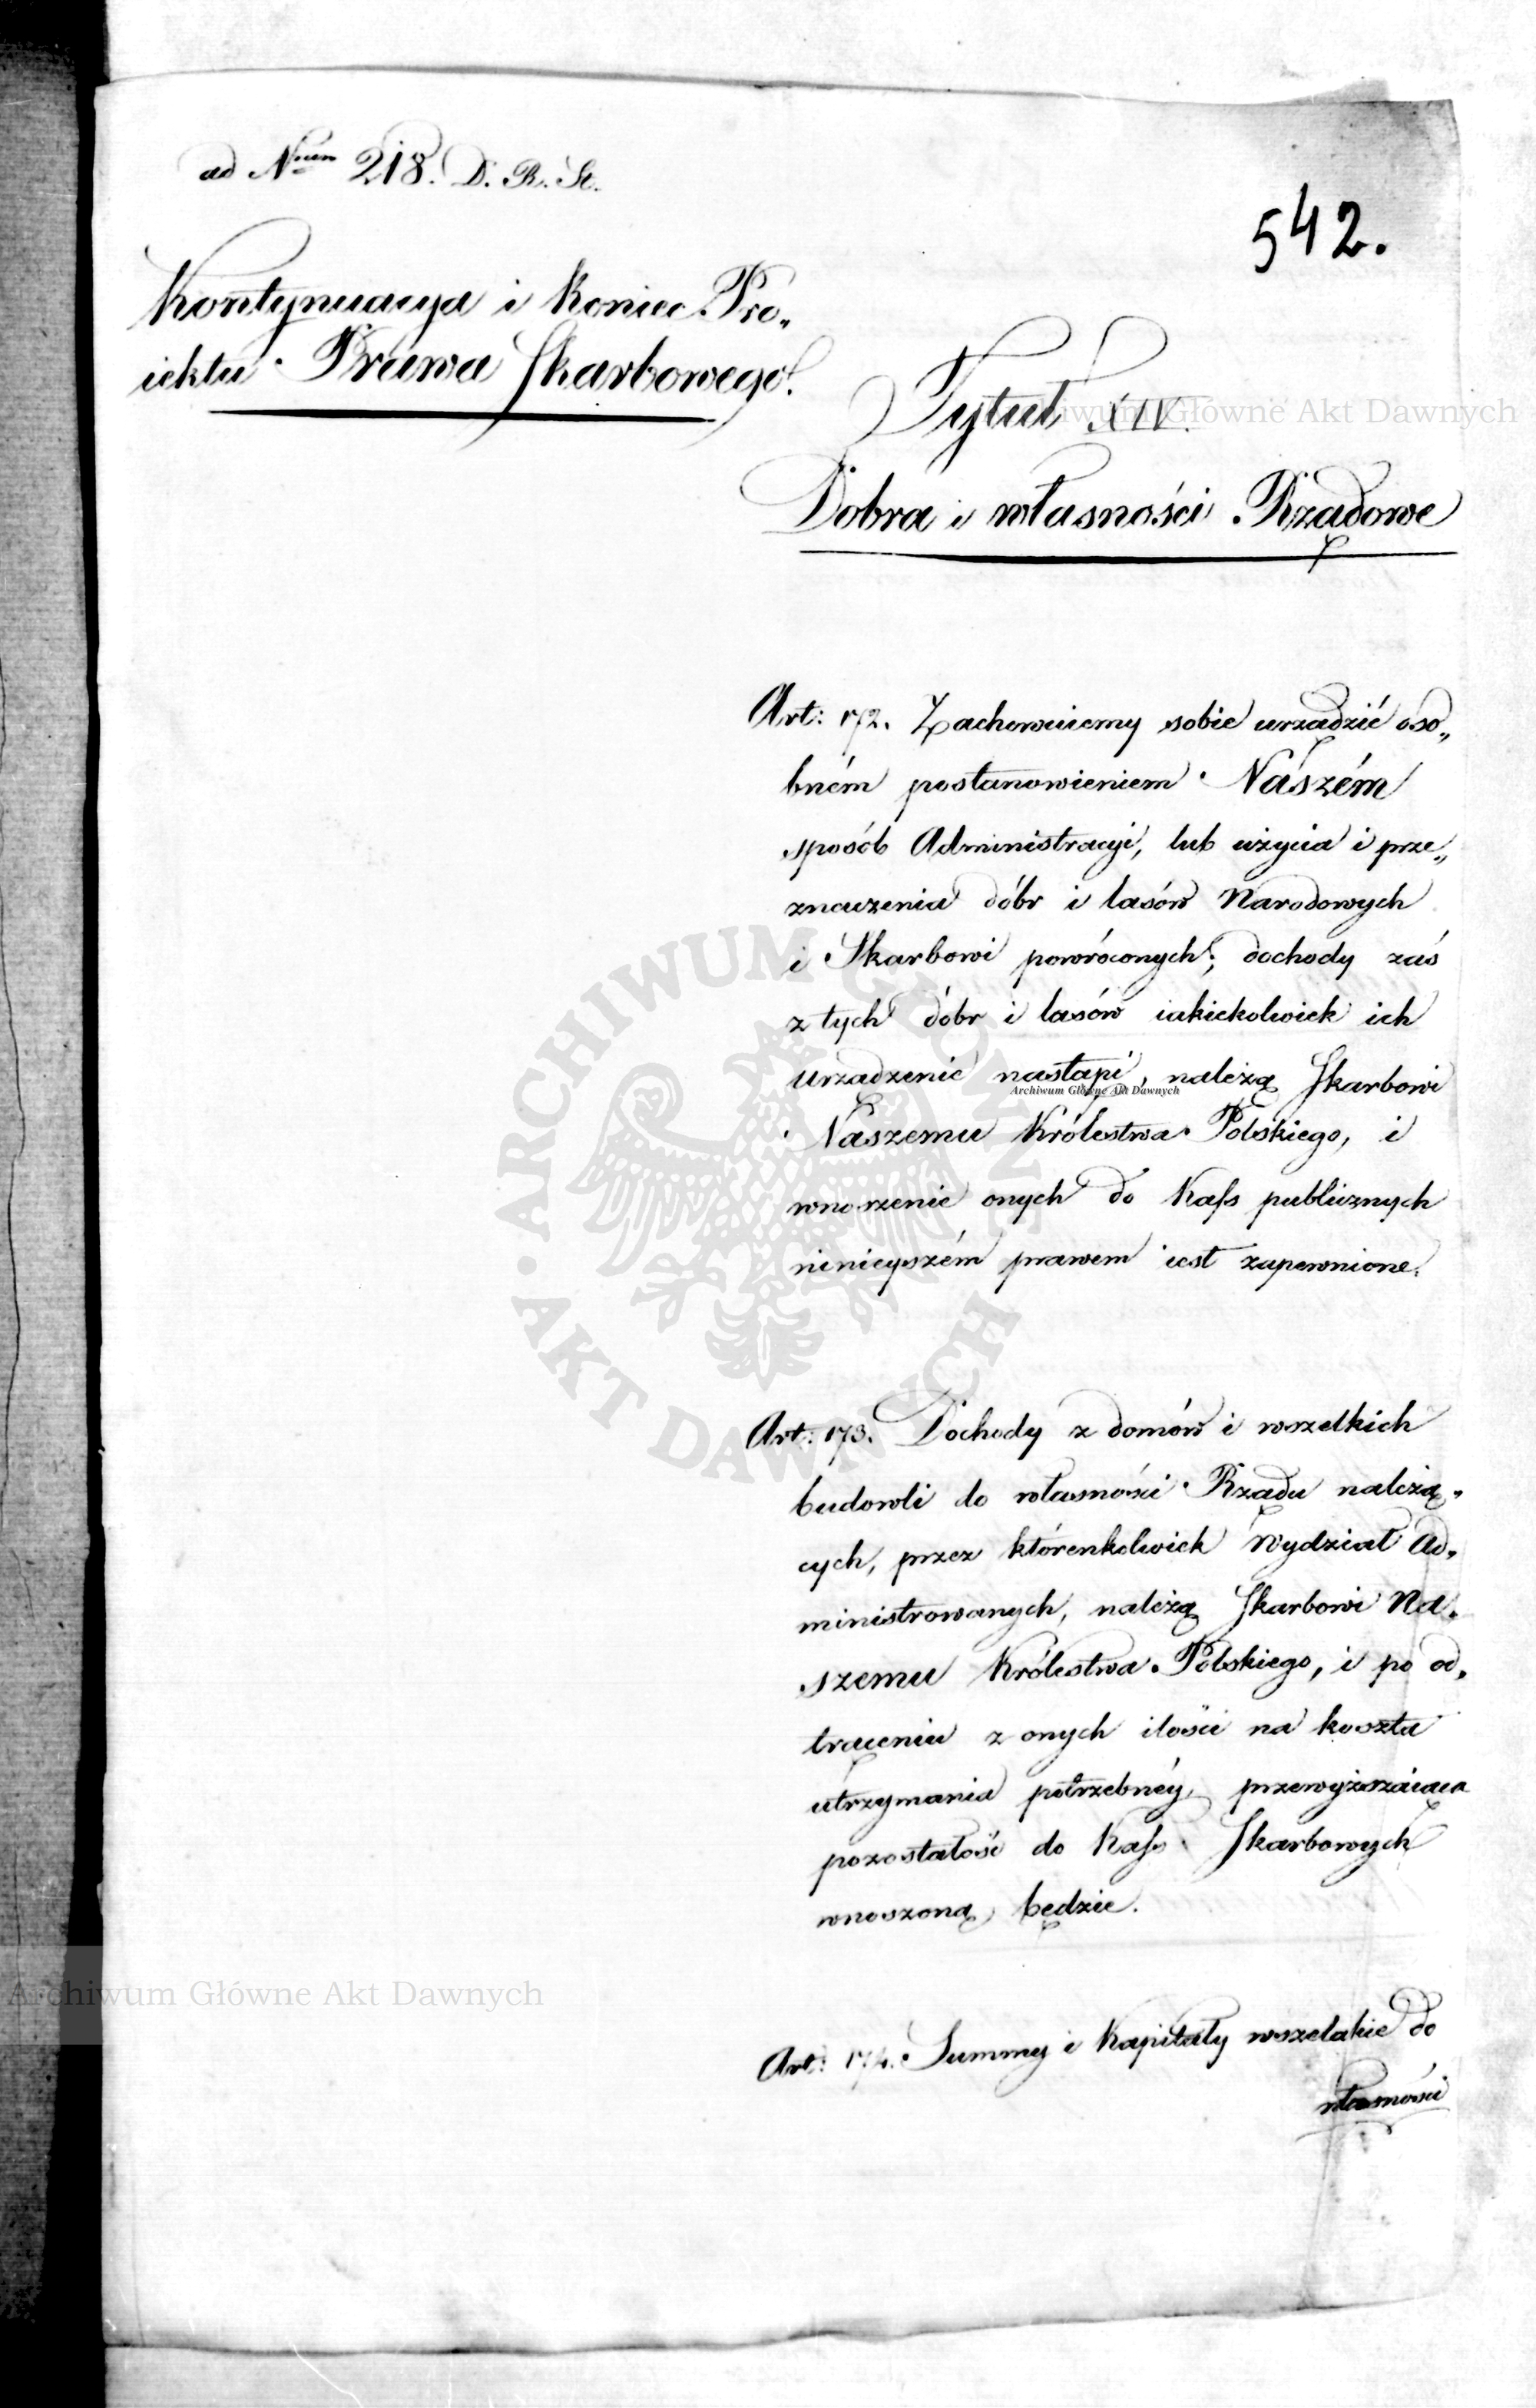 ad N<sup>rum</sup> 218. D. R. St.
542.
Kontynuacya i Koniec Pro„
iektu Prawa Skarbowego.
Tytuł XIV.
Dobra i własności Rządowe
Art: 172. Zachowuiemy sobie urządzić oso„
bném postanowieniem Naszém
sposób Administracyi, lub użycia i prze„
znaczenia dóbr i lasów Narodowych
i Skarbowi powróconych; dochody zaś
z tych dóbr i lasów iakiekolwiek ich
urządzenie nastąpi, należą Skarbowi
Naszemu Królestwa Polskiego, i
wnoszenie onych do Kass publicznych
ninieyszém prawem iest zapewnione.
Art: 173. Dochody z domów i wszelkich
budowli do własności Rządu należą„
cych, przez którenkolwiek Wydział Ad„
ministrowanych, należą Skarbowi Na„
szemu Królestwa Polskiego, i po od„
trąceniu z onych ilości na koszta
utrzymania potrzebnéy, przewyższaiąca
pozostałość do Kass Skarbowych
wnoszoną będzie.
Art: 174. Summy i Kapitały wszelakie do
własności
Archiwum Główne Akt Dawnych
Archiwum Główne Akt Dawnych
Archiwum Główne Akt Dawnych
ARCHIWUM GŁÓWNE
AKT DAWNYCH